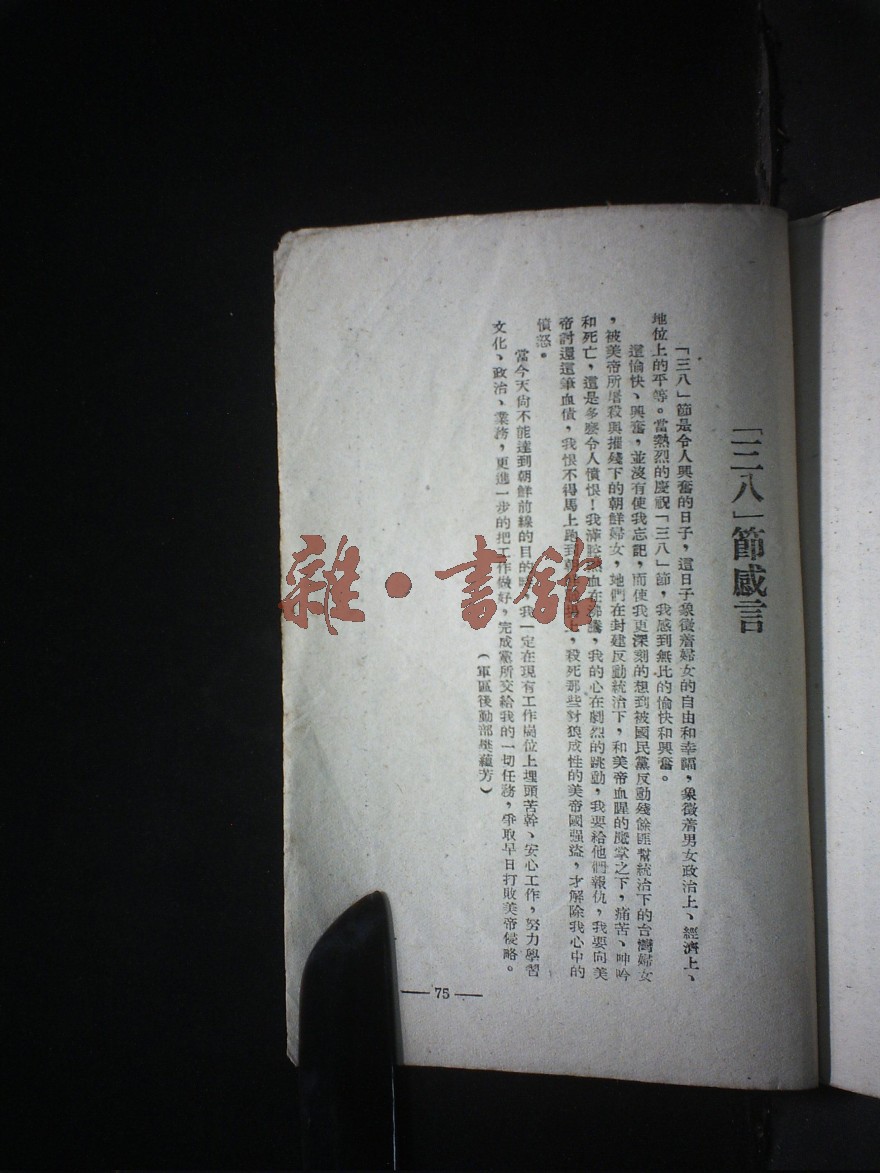 「三八」節感言
「三八」節是令人興奮的日子，這日子象徵着婦女的自由和幸福，象徵着男女政治上、經濟上、
地位上的平等。當熱烈的慶祝「三八」節，我感到無比的愉快和興奮。
這愉快、興奮，並沒有使我忘記，而使我更深刻的想到被國民黨反動殘餘匪幫統治下的台灣婦女
，被美帝所屠殺與摧殘下的朝鮮婦女，她們在封建反動統治下，和美帝血腥的魔掌之下，痛苦、呻吟
和死亡，這是多麼令人憤恨！我滿腔熱血在沸騰，我的心在劇烈的跳動，我要給他們報仇，我要向美
帝討還這筆血債，我恨不得馬上跑到朝鮮，殺死那些豺狼成性的美帝國强盜，才解除我心中的
憤怒。
當今天尙不能達到朝鮮前線的目的時，我一定在現有工作崗位上埋頭苦幹、安心工作，努力學習
文化、政治、業務，更進一步的把工作做好，完成黨所交給我的一切任務，爭取早日打敗美帝侵略。
（軍區後勤部 蘊芳）
— 75 —
雜·書館